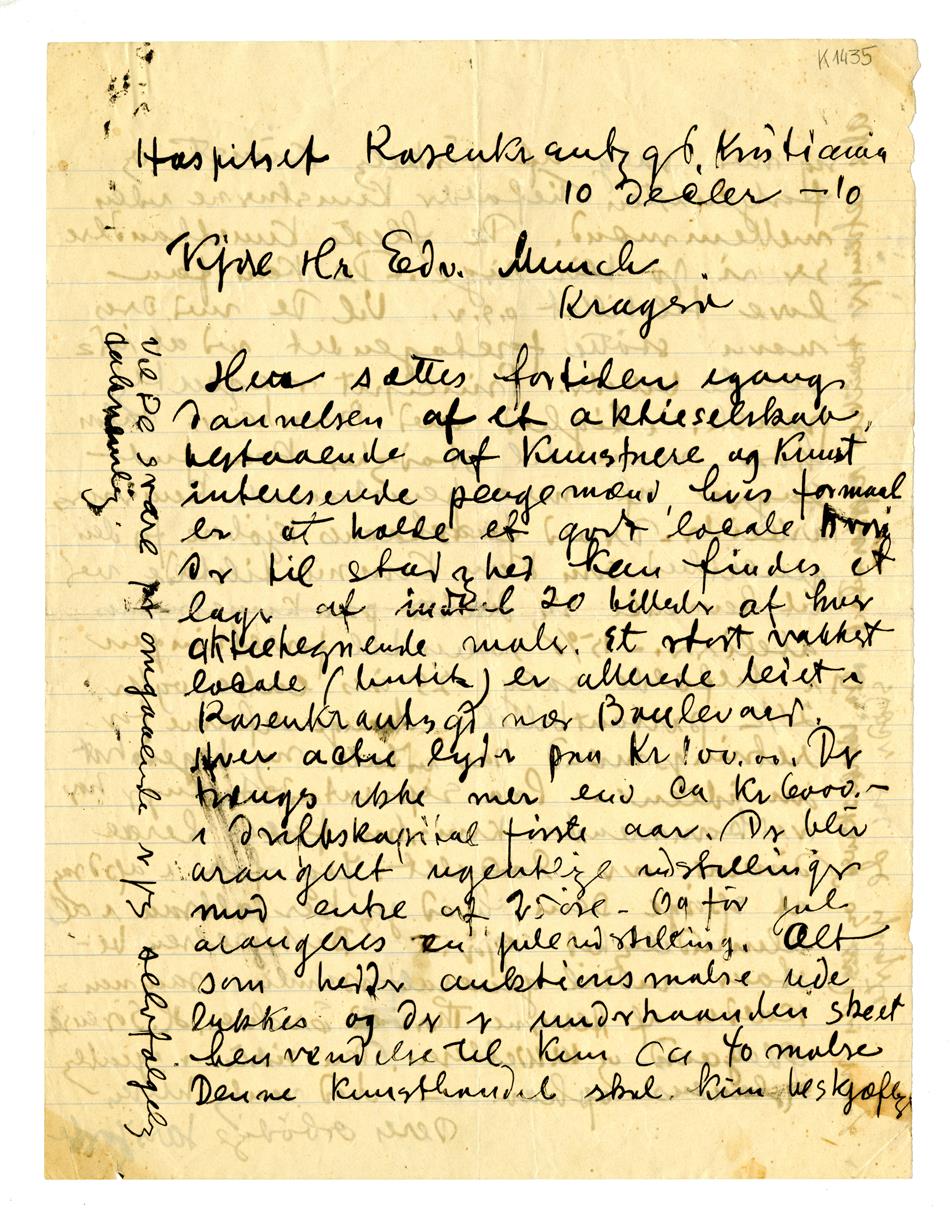 K1435
Hospitset Rosenkrantzg 6, Kristiania
10 Decbler – 10
Kjære Hr Edv. Munch
Kragerø
Her sættes fortiden igang
dannelsen af et aktieselskab,
bestaaende af kunstnere og kunst
interesserede pengemænd, hvis formaal
er at holde et godt locale hvori
der til stadighed kan findes et
lager af indtil 20 billeder af hver
aktietegnende maler. Et stort vakkert
locale (butik) er allerede leiet i
Rosenkrantzgd nær Boulevard.
Hver actie lyder paa Kr 100.00. Der
trænges ikke mer end ca Kr 6000.–
i driftskapital første aar. Der blir
arangeret ugentlige udstillinger
mod entre af 25 øre – Og før jul
arangeres en juleudstilling. Alt
som heder auktionsmalere ude
lukkes og der er underhaanden skeet
henvendelse til kun ca 40 malere
Denne Kunsthandel skal kun beskjæftige
Vil De svare pr omgaaende er jeg selvfølgelig
taknemlig